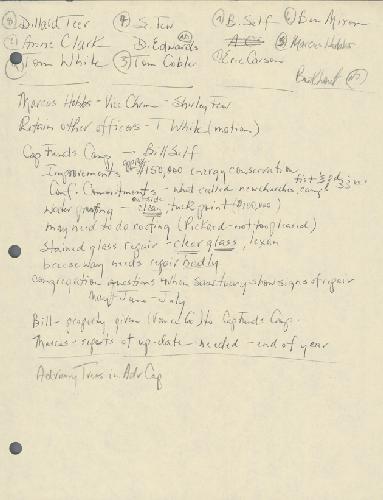 Dillard Teer S. Tew B. Self Ben Mixon
Anne Clark D. Edwards Marcus Hobbs
Tom White Tom Cobler Eric Carson
Marcus Hobbs - Vice Chrm - Shirley Tew
Retain other officers - T White (motion)
Cap Funds Camp - Bill Self
Improvements - $150,000 energy conservation
Conf. Commitments - what called new churches camp
Water proofing - clean, tuckpoint ($100,000)
outside
may need to do coating (Pickard - not implicated)
stained glass repair - clear glass, lexan
breezeway needs repair badly
congregation questions when sanctuary show signs of repair
May - June - July
Bill - property given to Cap Funds Camp.
Marcus - reports of up-date needed - end of year
in Adv Cap